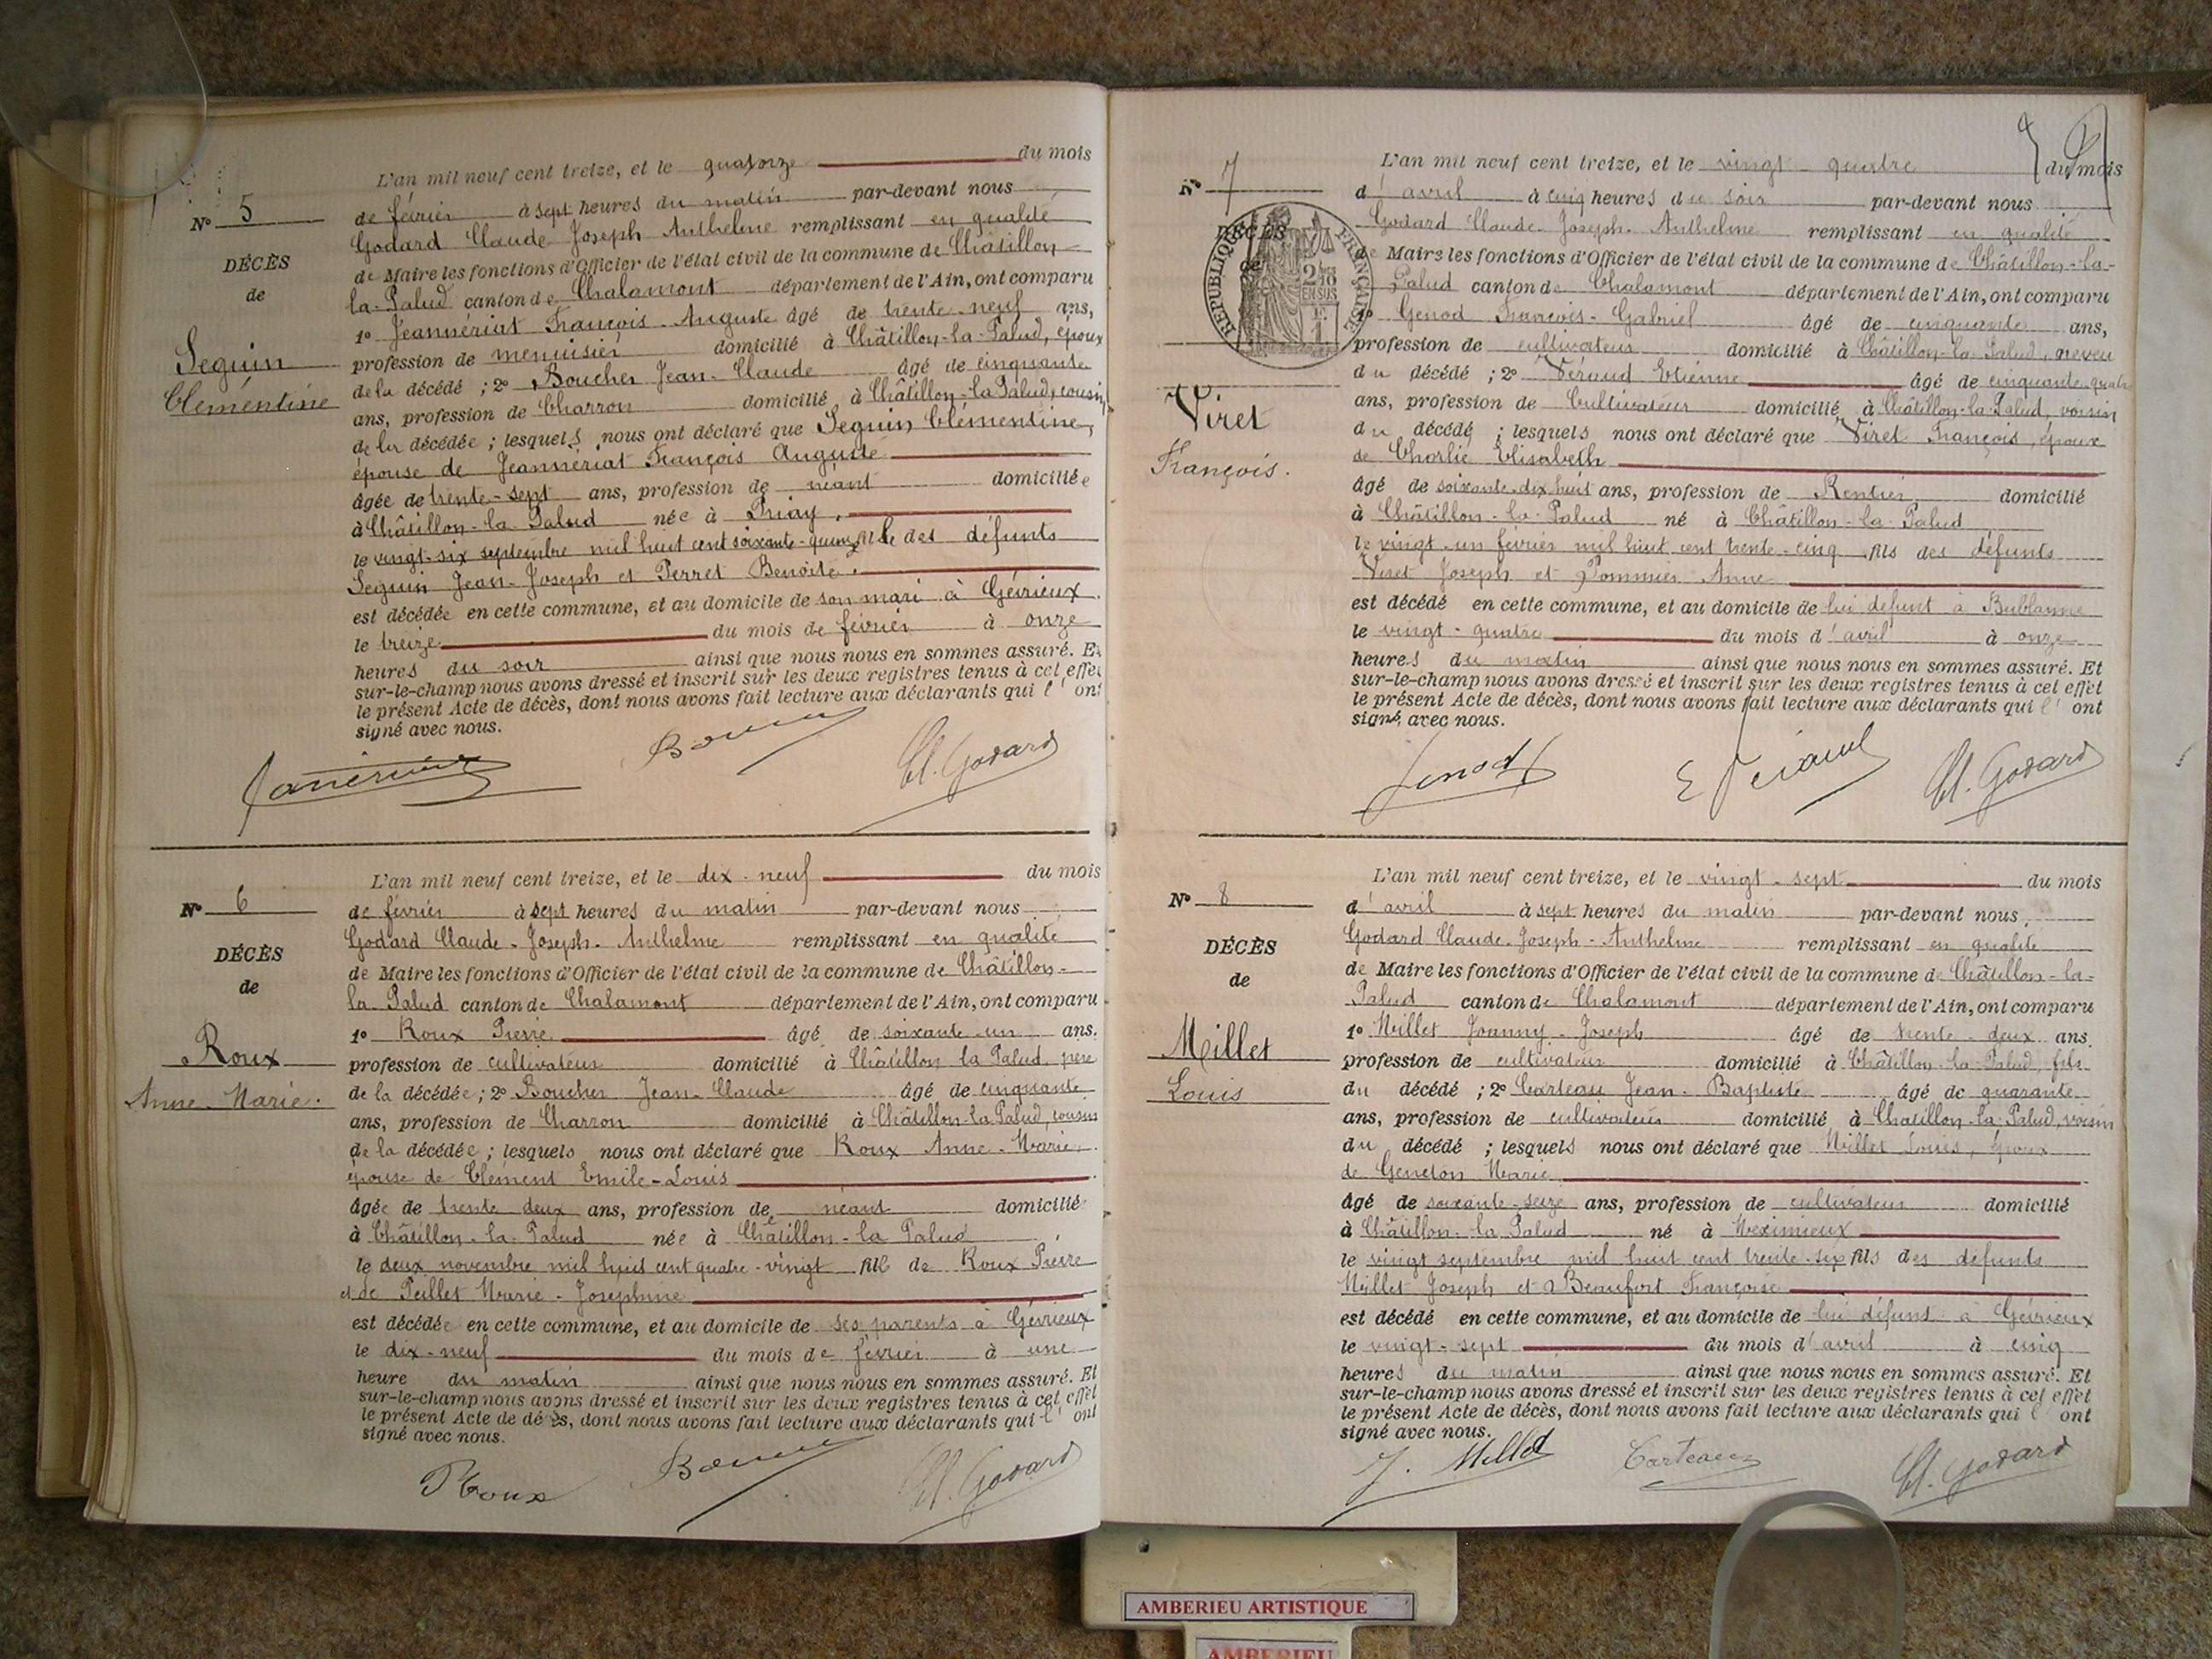 L'an mil neuf cent treize, et le quatorze du mois
N° 5
de février à sept heures du matin par-devant nous
Godard Claude Joseph Anthelme remplissant en qualité
DÉCÈS
de Maire les fonctions d'Officier de l'état civil de la commune de Châtillon-
de
la-Palud canton de Chalamont département de l'Ain, ont comparu
1° Jeannériat François-Auguste âgé de trente-neuf ans,
Seguin
profession de menuisier domicilié à Châtillon-la-Palud, époux
Clémentine
de la décédé ; 2° Boucher Jean-Claude âgé de cinquante
ans, profession de Charron domicilié à Châtillon-la-Palud, cousin
de la décédée ; lesquels nous ont déclaré que Seguin Clémentine,
épouse de Jeannériat François Auguste
âgée de trente-sept ans, profession de néant domiciliée
à Châtillon-la-Palud née à Priay,
le vingt-six septembre mil huit cent soixante-quinze fille des défunts
Seguin Jean-Joseph et Perret Benoite.
est décédée en cette commune, et au domicile de son mari à Gévrieux.
le treize du mois de février à onze
heures du soir ainsi que nous nous en sommes assuré. Et
sur-le-champ nous avons dressé et inscrit sur les deux registres tenus à cet effet
le présent Acte de décès, dont nous avons fait lecture aux déclarants qui l'ont
signé avec nous.
Cl. Godard
L'an mil neuf cent treize, et le dix-neuf du mois
N° 6
de février à sept heures du matin par-devant nous
Godard Claude-Joseph-Anthelme remplissant en qualité
DÉCÈS
de Maire les fonctions d'Officier de l'état civil de la commune de Châtillon-
de
la Palud canton de Chalamont département de l'Ain, ont comparu
1° Roux Pierre âgé de soixante-un ans.
Roux
profession de cultivateur domicilié à Châtillon la Palud, père
Anne-Marie.
de la décédée ; 2° Boucher Jean-Claude âgé de cinquante
ans, profession de Charron domicilié à Châtillon-la-Palud, cousin
de la décédée ; lesquels nous ont déclaré que Roux Anne-Marie,
épouse de Clément Emile-Louis
âgée de trente deux ans, profession de néant domicilié
à Châtillon-la-Palud née à Châtillon-la Palud
le deux novembre mil huit cent quatre-vingt fille de Roux Pierre
et de Peillet Marie-Joséphine
est décédée en cette commune, et au domicile de ses parents à Gévrieux
le dix-neuf du mois de février à une
heure du matin ainsi que nous nous en sommes assuré. Et
sur-le-champ nous avons dressé et inscrit sur les deux registres tenus à cet effet
le présent Acte de décès, dont nous avons fait lecture aux déclarants qui l'ont
signé avec nous.
Roux Cl. Godard
4
L'an mil neuf cent treize, et le vingt-quatre du mois
N° 7
d'avril à cinq heures du soir par-devant nous
Godard Claude-Joseph-Anthelme remplissant en qualité
DÉCÈS
de
RÉPUBLIQUE FRANÇAISE
EN SUS
de Maire les fonctions d'Officier de l'état civil de la commune de Châtillon-la-
Palud canton de Chalamont département de l'Ain, ont comparu
1° Genod François-Gabriel âgé de cinquante ans,
profession de cultivateur domicilié à Châtillon-la-Palud, neveu
du décédé ; 2° Véraud Etienne âgé de cinquante-quatre
Viret
ans, profession de Cultivateur domicilié à Châtillon-la-Palud, voisin
du décédé ; lesquels nous ont déclaré que Viret François, époux
François.
de Charlie Elisabeth
âgé de soixante-dix huit ans, profession de Rentier domicilié
à Châtillon-la-Palud né à Châtillon-la-Palud
le vingt-un février mil huit cent trente-cinq fils des défunts
Viret Joseph et Pommier Anne
est décédé en cette commune, et au domicile de lui défunt à Bublanne
le vingt-quatre du mois d'avril à onze
heures du matin ainsi que nous nous en sommes assuré. Et
sur-le-champ nous avons dressé et inscrit sur les deux registres tenus à cet effet
le présent Acte de décès, dont nous avons fait lecture aux déclarants qui l'ont
signé, avec nous.
Genod Cl. Godard
L'an mil neuf cent treize, et le vingt-sept du mois
N° 8
d'avril à sept heures du matin par-devant nous
Godard Claude-Joseph-Anthelme remplissant en qualité
DÉCÈS
de Maire les fonctions d'Officier de l'état civil de la commune de Châtillon-la-
de
Palud canton de Chalamont département de l'Ain, ont comparu
1° Millet Joanny-Joseph âgé de trente-deux ans.
Millet
profession de cultivateur domicilié à Châtillon-la-Palud, fils
Louis
du décédé ; 2° Carteau Jean-Baptiste âgé de quarante
ans, profession de cultivateur domicilié à Chatillon-la-Palud, voisin
du décédé ; lesquels nous ont déclaré que Millet Louis, époux
de Geneton Marie
âgé de soixante-seize ans, profession de cultivateur domicilié
à Châtillon-la-Palud né à Meximieux
le vingt septembre mil huit cent trente-six fils des défunts
Millet Joseph et Beaufort Françoise
est décédé en cette commune, et au domicile de lui défunt à Gévrieux
le vingt-sept du mois d'avril à cinq
heures du matin ainsi que nous nous en sommes assuré. Et
sur-le-champ nous avons dressé et inscrit sur les deux registres tenus à cet effet
le présent Acte de décès, dont nous avons fait lecture aux déclarants qui l'ont
signé avec nous.
J. Millet Carteau Cl. Godard
AMBERIEU ARTISTIQUE
AMBERIEU